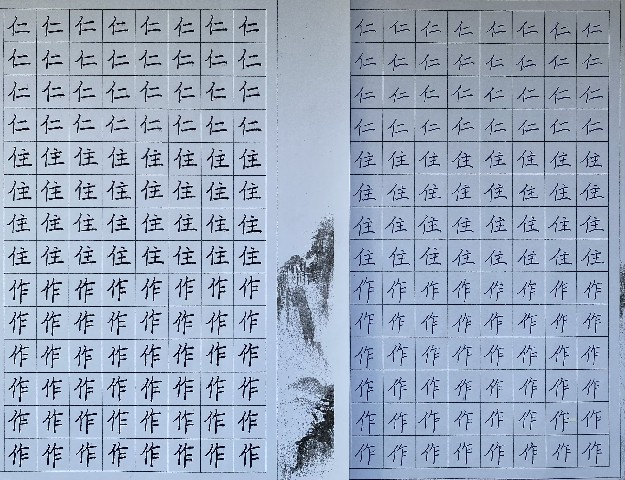 仁仁仁仁仁仁仁仁
仁仁仁仁仁仁仁仁
仁仁仁仁仁仁仁仁
仁仁仁仁仁仁仁仁
住住住住住住住住
住住住住住住住住
住住住住住住住住
住住住住住住住住
作作作作作作作作
作作作作作作作作
作作作作作作作作
作作作作作作作作
作作作作作作作作
作作作作作作作作
仁仁仁仁仁仁仁仁
仁仁仁仁仁仁仁仁
仁仁仁仁仁仁仁仁
仁仁仁仁仁仁仁仁
住住住住住住住住
住住住住住住住住
住住住住住住住住
住住住住住住住住
作作作作作作作作
作作作作作作作作
作作作作作作作作
作作作作作作作作
作作作作作作作作
作作作作作作作作